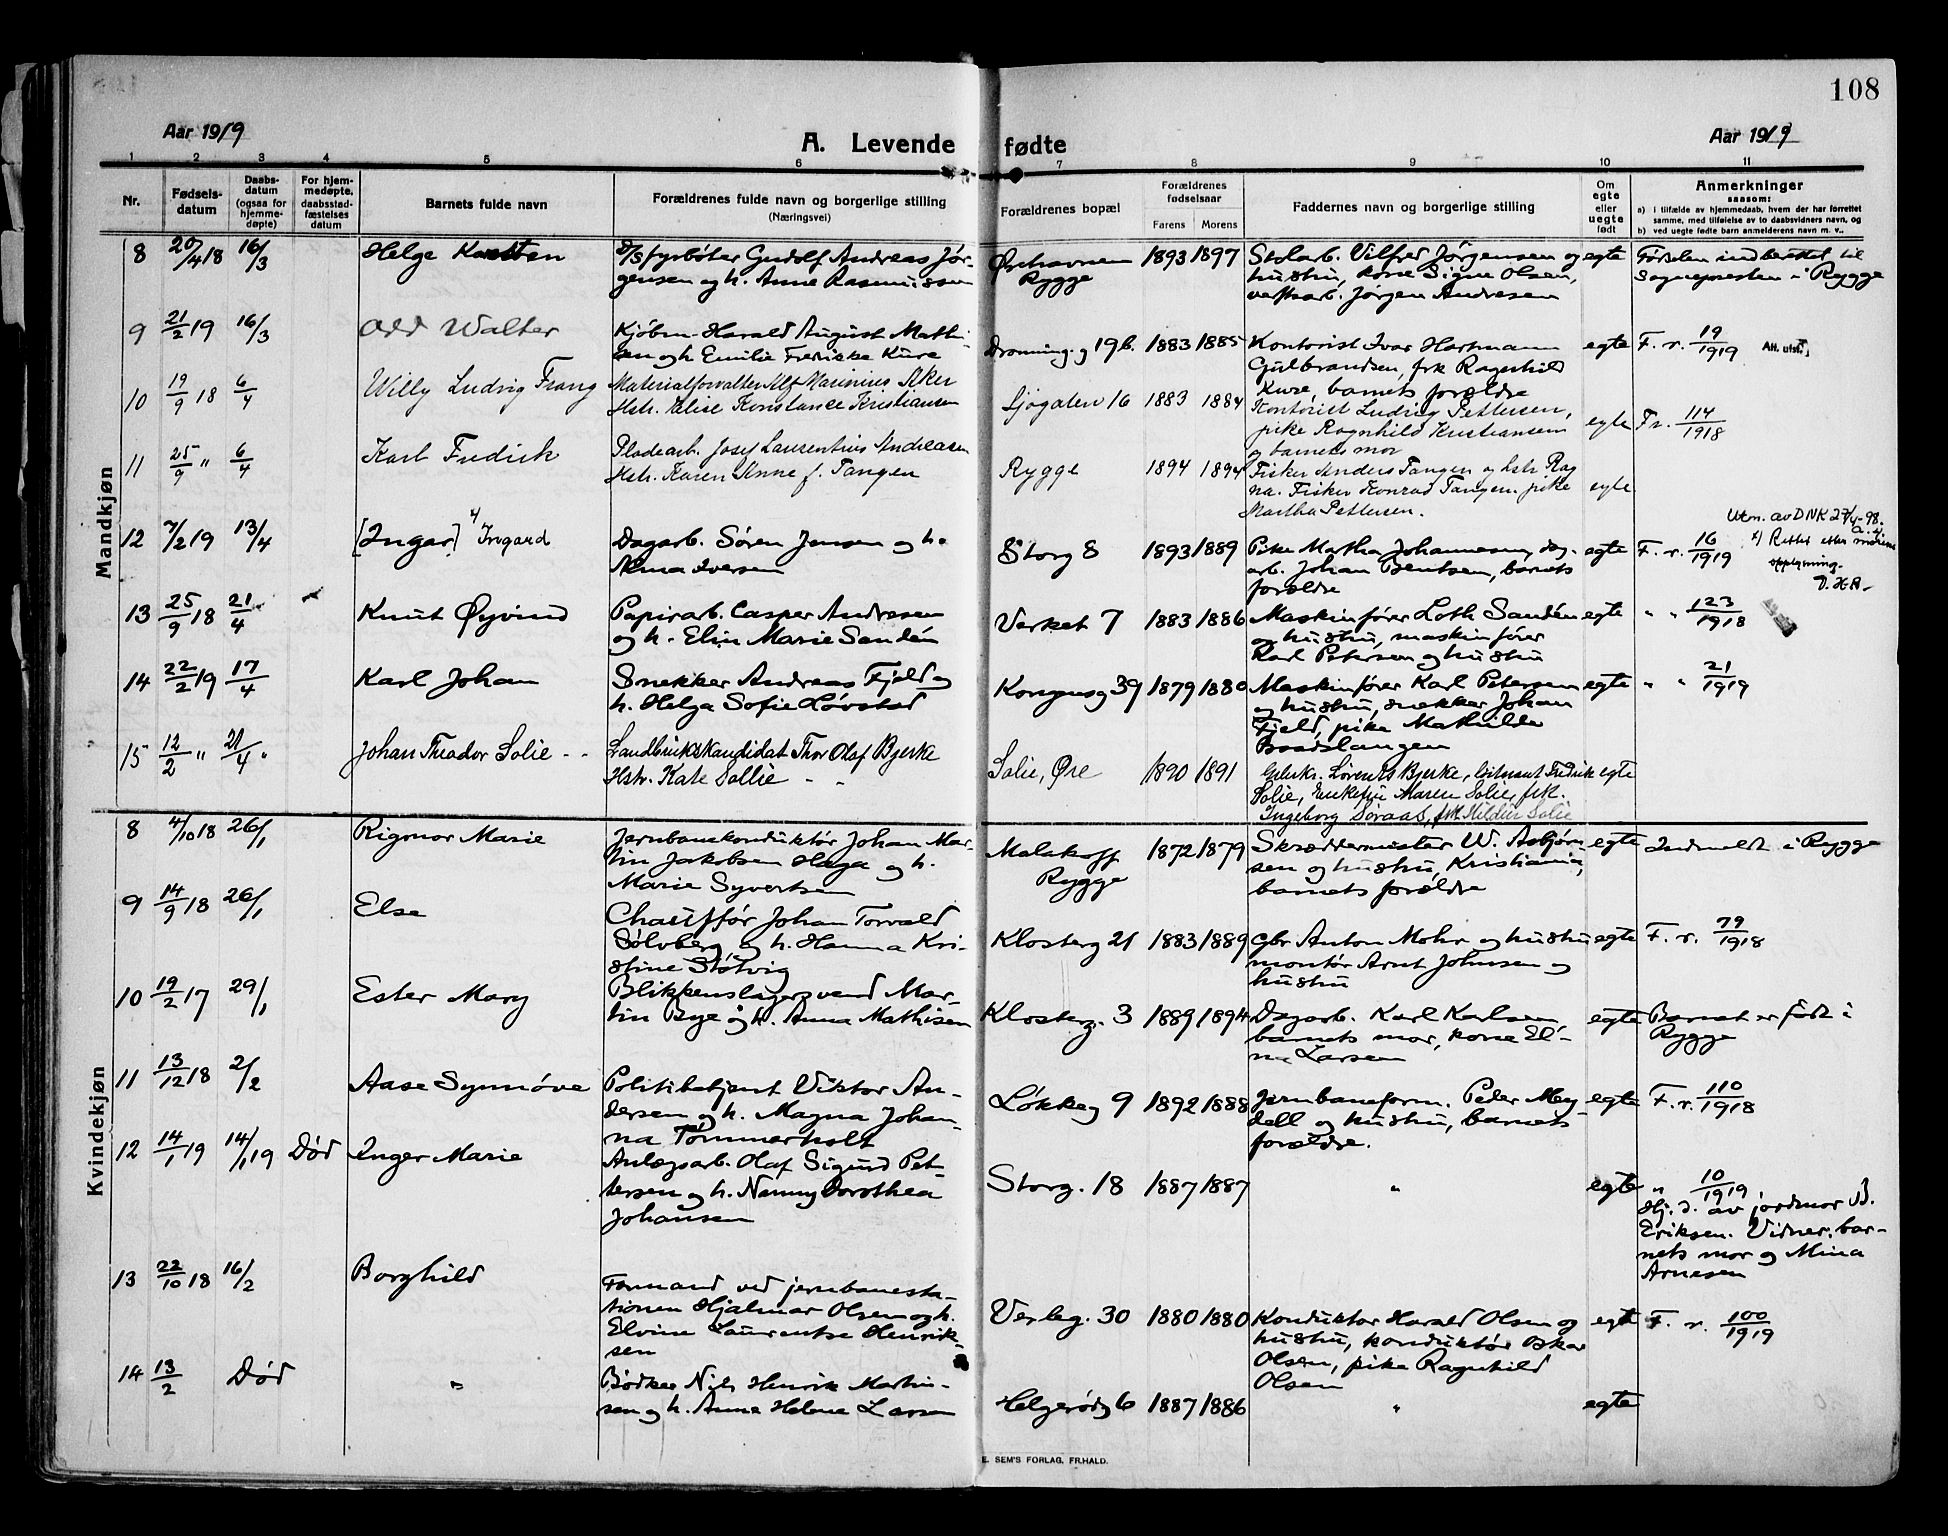 108
Aar 1919
A. Levende fødte
Aar 1919
1 2 3 4 5 6 7 8 9 10 11
Nr.
Fødsels-
datum
Daabs-
datum
(ogsaa for
hjemme-
døpte)
For hjem-
medøpte,
daabsstad-
fæstelses
datum
Barnets fulde navn
Forældrenes fulde navn og borgerlige stilling
(Næringsvei)
Forældrenes bopæl
Forældrenes
fødselsaar
Farens Morens
Faddernes navn og borgerlige stilling
Om
egte
eller
uegte
født
Anmerkninger
saasom:
a) i tilfælde av hjemmedaab, hvem der har forrettet
samme, med tilføielse av to daabsvidners navn, og
b) ved uegte fødte barn anmelderens navn m. v..
Mandkjøn
8 20/4 18 16/3 Helge Karsten
D/S fyrbøter Gudolf Andreas Jør-
gensen og h. Anne Rasmussen
Ørehavnen
Rygge
1893 1897
Stolarb. Vilfred Jørgensen og
hustru, kone Signe Olsen,
verftsarb. Jørgen Andresen
egte
Fødselen indberettet til
sognepresten i Rygge
9 21/2 19 16/3 Odd Walter
Kjøbm. Harald August Mathi-
sen og h. Emilie Fredrikke Kure
Dronning.g 19b. 1883 1885
Kontorist Ivar Hartmann
Gulbrandsen, frk Ragnhild
Kure, barnets forældre
egte F. r. 19/1919 Att. utst.
10 19/9 18 6/4 Willy Ludvig Frang
Materialforvalter Alf Marinius Aker
Hstr. Elise Konstance Kristiansen
Sjøgaten 16 1883 1884
Kontorist Ludvig Pettersen,
pike Ragnhild Kristiansen
og barnets mor
egte Fr. 114/1918
11 25/9 " 6/4 Karl Fredrik
Pladearb. Josef Laurentius Andreasen
Hstr. Karen Anne f. Tangen
Rygge 1894 1894
Fisker Anders Tangen og hstr Rag
na. Fisker Konrad Tangen, pike
Martha Pettersen.
egte
12 7/2 19 13/4 [Ingar] Ingard
Dagarb. Søren Jensen og h.
Alma Iversen
Storg 8 1893 1889
Pike Martha Johannesen, dag-
arb. Johan Bentsen, barnets
forældre
egte F. r. 16/1919
Utm. av DNK 27/4-98.
x) Rettet efter morens
opplysning.
13 25/9 18 21/4 Knut Øyvind
Papirarb. Casper Andresen
og h. Elin Marie Sandén
Verket 7 1883 1886
Maskinfører Loth Sandén
og hustru, maskinfører
Karl Petersen og hustru
egte " " 123/1918
14 22/2 19 17/4 Karl Johan
Snekker Andreas Fjeld og
h. Helga Sofie Løvstad
Kongensg 39 1879 1880
Maskinfører Karl Petersen
og hustru, snekker Johan
Fjeld, pike Mathilde
Baadslangen
egte " " 21/1919
15 12/2 " 21/4 " Johan Theodor Solie - -
Landbrukskandidat Thor Olaf Bjerke
Hstr. Kate Sollie - "
Solie, Øre 1890 1891
Gdbrkr. Lorents Bjerke, løitnant Fredrik
Solie, Enkefru Maren Solie, frk.
Ingeborg Søraas, frk Hildur Solie
egte
Kvindekjøn
8 4/10 18 26/1 Rigmor Marie
Jernbanekonduktør Johan Mar-
tin Jakobsen Haga og h.
Marie Syvertsen
Malakoff
Rygge
1872 1879
Skræddermester W. Asbjørn
sen og hustru, Kristiania,
barnets forældre
egte Indmeldt i Rygge
9 14/9 18 26/1 Else
Chauffør Johan Torvald
Sølvberg og h. Hanna Kri-
stine Støtvig
Klosterg 21 1883 1889
Gbr Anton Mohr og hustru
montør Arnt Johnsen og
hustru
egte F. r. 79/1918
10 19/2 17 29/1 Ester Mary
Blikkenslagersvend Mar-
tin Bye og h. Anna Mathisen
Klosterg. 3 1889 1894
Dagarb. Karl Karlsen
barnets mor, kone El-
na Larsen
egte
Barnet er født i
Rygge
11 13/12 18 2/2 Aase Synnøve
Politibetjent Viktor An-
dersen og h. Magna Johan-
na Tømmerholt
Løkkeg 9 1892 1888
Jernbaneform. Peder Mey-
dell og hustru, barnets
forældre.
egte F. r. 110/1918
12 14/1 19 14/1 19 Død Inger Marie
Anlægsarb. Olaf Sigurd Pet-
tersen og h. Nanny Dorothea
Johansen
Storg. 18 1887 1887 " egte
" 10/1919
Hj. d. av jordmor B.
Eriksen. Vidner: bar-
nets mor og Mina
Arnesen
13 22/10 18 16/2 Borghild
Formand ved jernbanesta-
tionen Hjalmar Olsen og h.
Elvine Laurentse Henrik-
sen
Verleg. 30 1880 1880
Konduktør Harald Olsen og
hustru, konduktør Oskar
Olsen, pike Ragnhild
Olsen
egte F. r. 100/1919
14 13/2 Død "
Bødker Nils Henrik Martin-
sen og h. Anna Helene Larsen
Helgerødg 6 1887 1886 " egte
E. SEM'S FORLAG, FR.HALD.